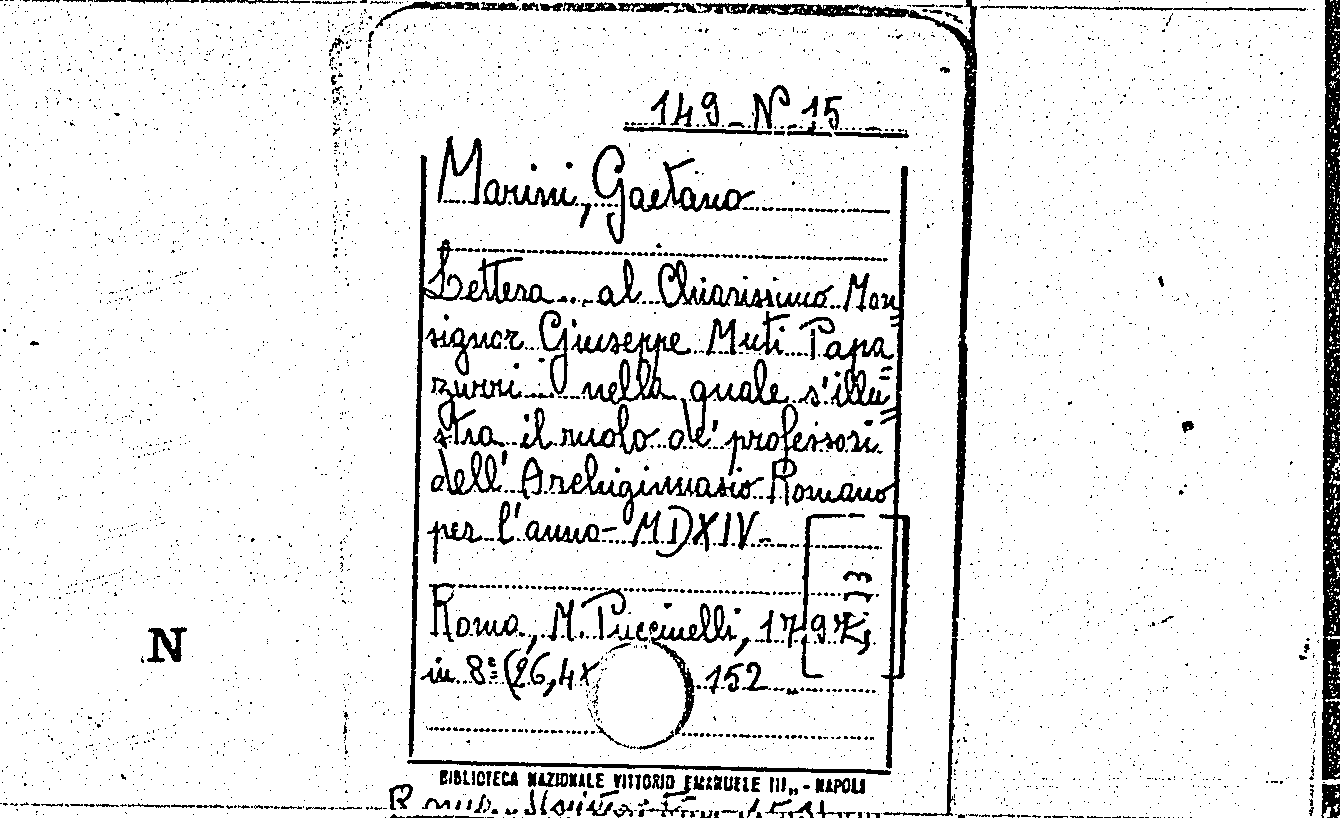 149 - N - 15
Marini, Gaetano
Lettera ... al Chiarissimo Mon=
signor Giuseppe Muti Papa=
zurri ... nella quale s'illu=
stra il ruolo de' professori
dell' Archiginnasio Romano
per l'anno - MDXIV -
Roma, M. Puccinelli, 1797;
in 8° (26,4x 152
N
BIBLIOTECA NAZIONALE VITTORIO EMANUELE III„ - NAPOLI